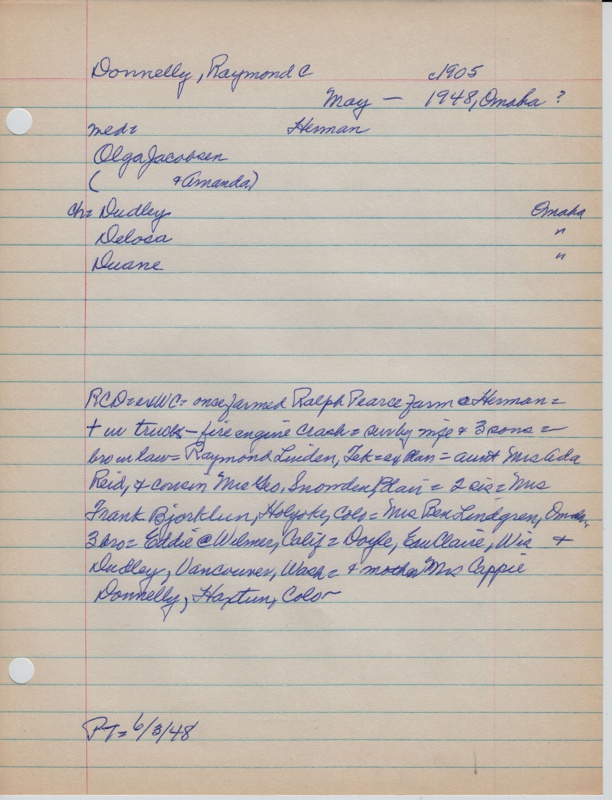 Donnelly, Raymond C c1905
May — 1948, Omaha ?
med= Herman
Olga Jacobsen
( & Amanda)
ch= Dudley Omaha
Delosa "
Duane "
RCD= exWC= once farmed Ralph Pearce farm @ Herman =
+ in truck - fire engine crash = surv by wife & 3 sons =
bro in law = Raymond Linden, Tek = ex Plan = aunt Mrs Ada
Reid, & cousin Mrs Geo, Snowden, Blair = 2 sis = Mrs
Frank Bjorklun, Holyoke, Colo = Mrs Ben Lindgren, Omaha
3 bro = Eddie @ Wilmer, Calif = Doyle, Eau Claire, Wis &
Dudley, Vancouver, Wash = & mother Mrs Cappie
Donnelly, Haxtun, Colo
PT= 6/3/48